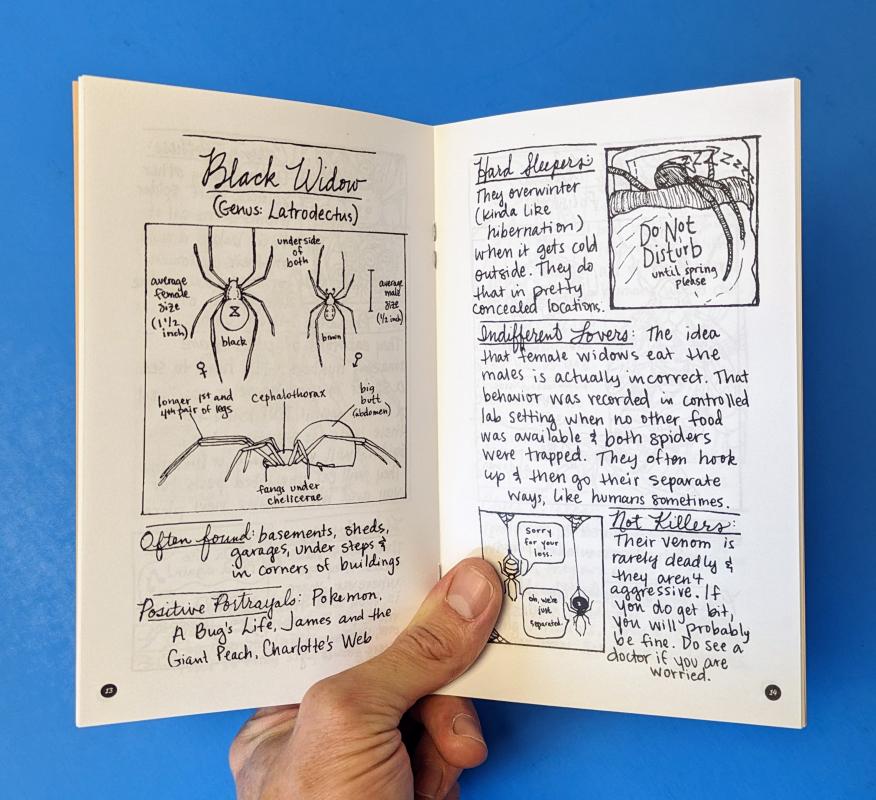 Black Widow
(Genus: Latrodectus)
underside
of
both
average
female
size
(1 1/2
inch)
black
♀
average
male
size
(1/2 inch)
brown
♂
longer 1st and
4th pair of legs
Cephalothorax
big
butt
(abdomen)
fangs under
chelicerae
Often found: basements, sheds,
garages, under steps &
in corners of buildings
Positive Portrayals: Pokemon,
A Bug's Life, James and the
Giant Peach, Charlotte's Web
13
Hard Sleepers:
They overwinter
(kinda like
hibernation)
when it gets cold
outside. They do
that in pretty
concealed locations.
ZZZZzzz
Do Not
Disturb
until spring
please
Indifferent Lovers: The idea
that female widows eat the
males is actually incorrect. That
behavior was recorded in controlled
lab setting when no other food
was available & both spiders
were trapped. They often hook
up & then go their separate
ways, like humans sometimes.
Sorry
for your
loss.
oh, we're
just
separated.
Not Killers:
Their venom is
rarely deadly &
they aren't
aggressive. If
you do get bit,
you will probably
be fine. Do see a
doctor if you are
worried.
14